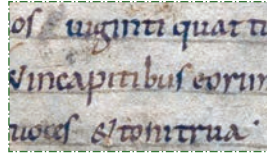 os uiginti quat tu
incapitibus eorum
uoces & tonitrua·